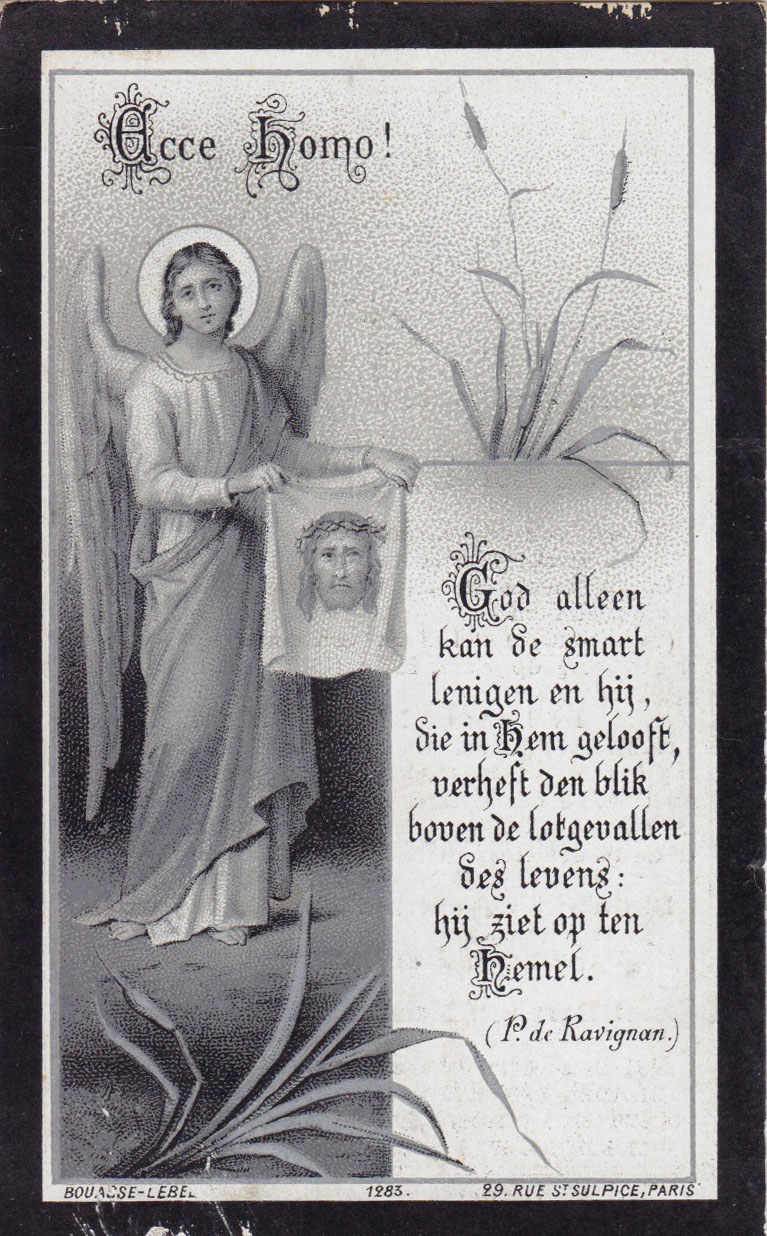 Ecce Homo!
God alleen
kan de smart
lenigen en hij,
die in Hem gelooft,
verheft den blik
boven de lotgevallen
des levens:
hij ziet op ten
Hemel.
(P. de Ravignan.)
BOUASSE-LEBEL 1283. 29. RUE ST SULPICE, PARIS